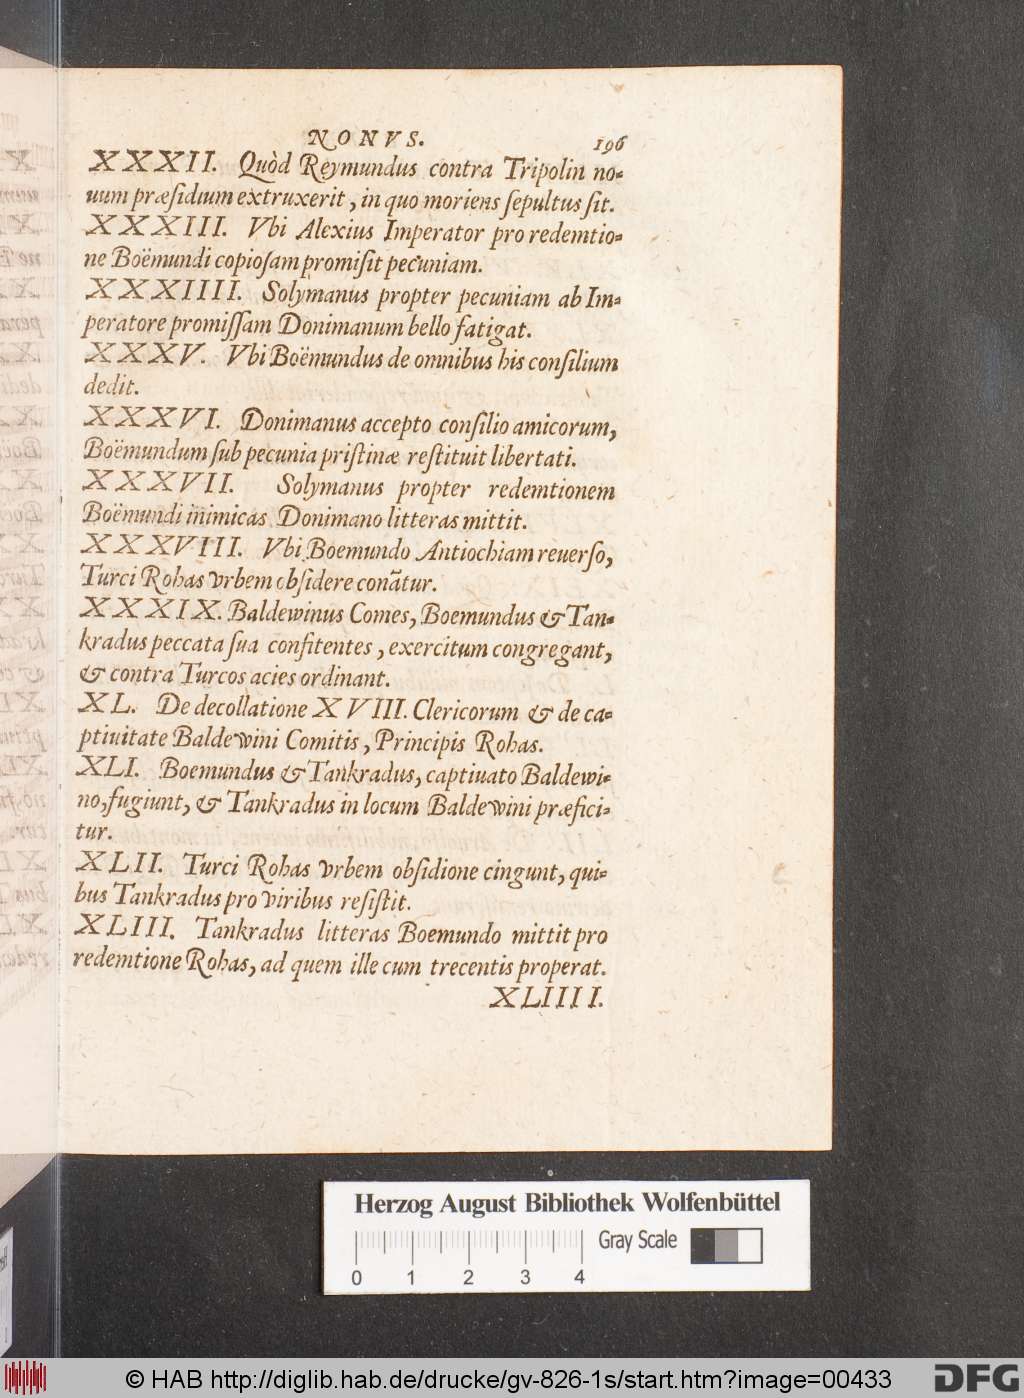 NONVS. 196
XXXII. Quòd Reymundus contra Tripolin no-
uum præsidium extruxerit, in quo moriens sepultus sit.
XXXIII. Vbi Alexius Imperator pro redemtio-
ne Boëmundi copiosam promisit pecuniam.
XXXIIII. Solymanus propter pecuniam ab Im-
peratore promissam Donimanum bello fatigat.
XXXV. Vbi Boëmundus de omnibus his consilium
dedit.
XXXVI. Donimanus accepto consilio amicorum,
Boëmundum sub pecunia pristinæ restituit libertati.
XXXVII. Solymanus propter redemtionem
Boëmundi inimicas Donimano litteras mittit.
XXXVIII. Vbi Boemundo Antiochiam reuerso,
Turci Rohas vrbem obsidere conãtur.
XXXIX. Baldewinus Comes, Boemundus & Tan-
kradus peccata sua confitentes, exercitum congregant,
& contra Turcos acies ordinant.
XL. De decollatione XVIII. Clericorum & de ca-
ptiuitate Baldewini Comitis, Principis Rohas.
XLI. Boemundus & Tankradus, captiuato Baldewi-
no, fugiunt, & Tankradus in locum Baldewini præfici-
tur.
XLII. Turci Rohas vrbem obsidione cingunt, qui-
bus Tankradus pro viribus resistit.
XLIII. Tankradus litteras Boemundo mittit pro
redemtione Rohas, ad quem ille cum trecentis properat.
XLIIII.
Herzog August Bibliothek Wolfenbüttel
Gray Scale
0 1 2 3 4
© HAB http://diglib.hab.de/drucke/gv-826-1s/start.htm?image=00433
DFG